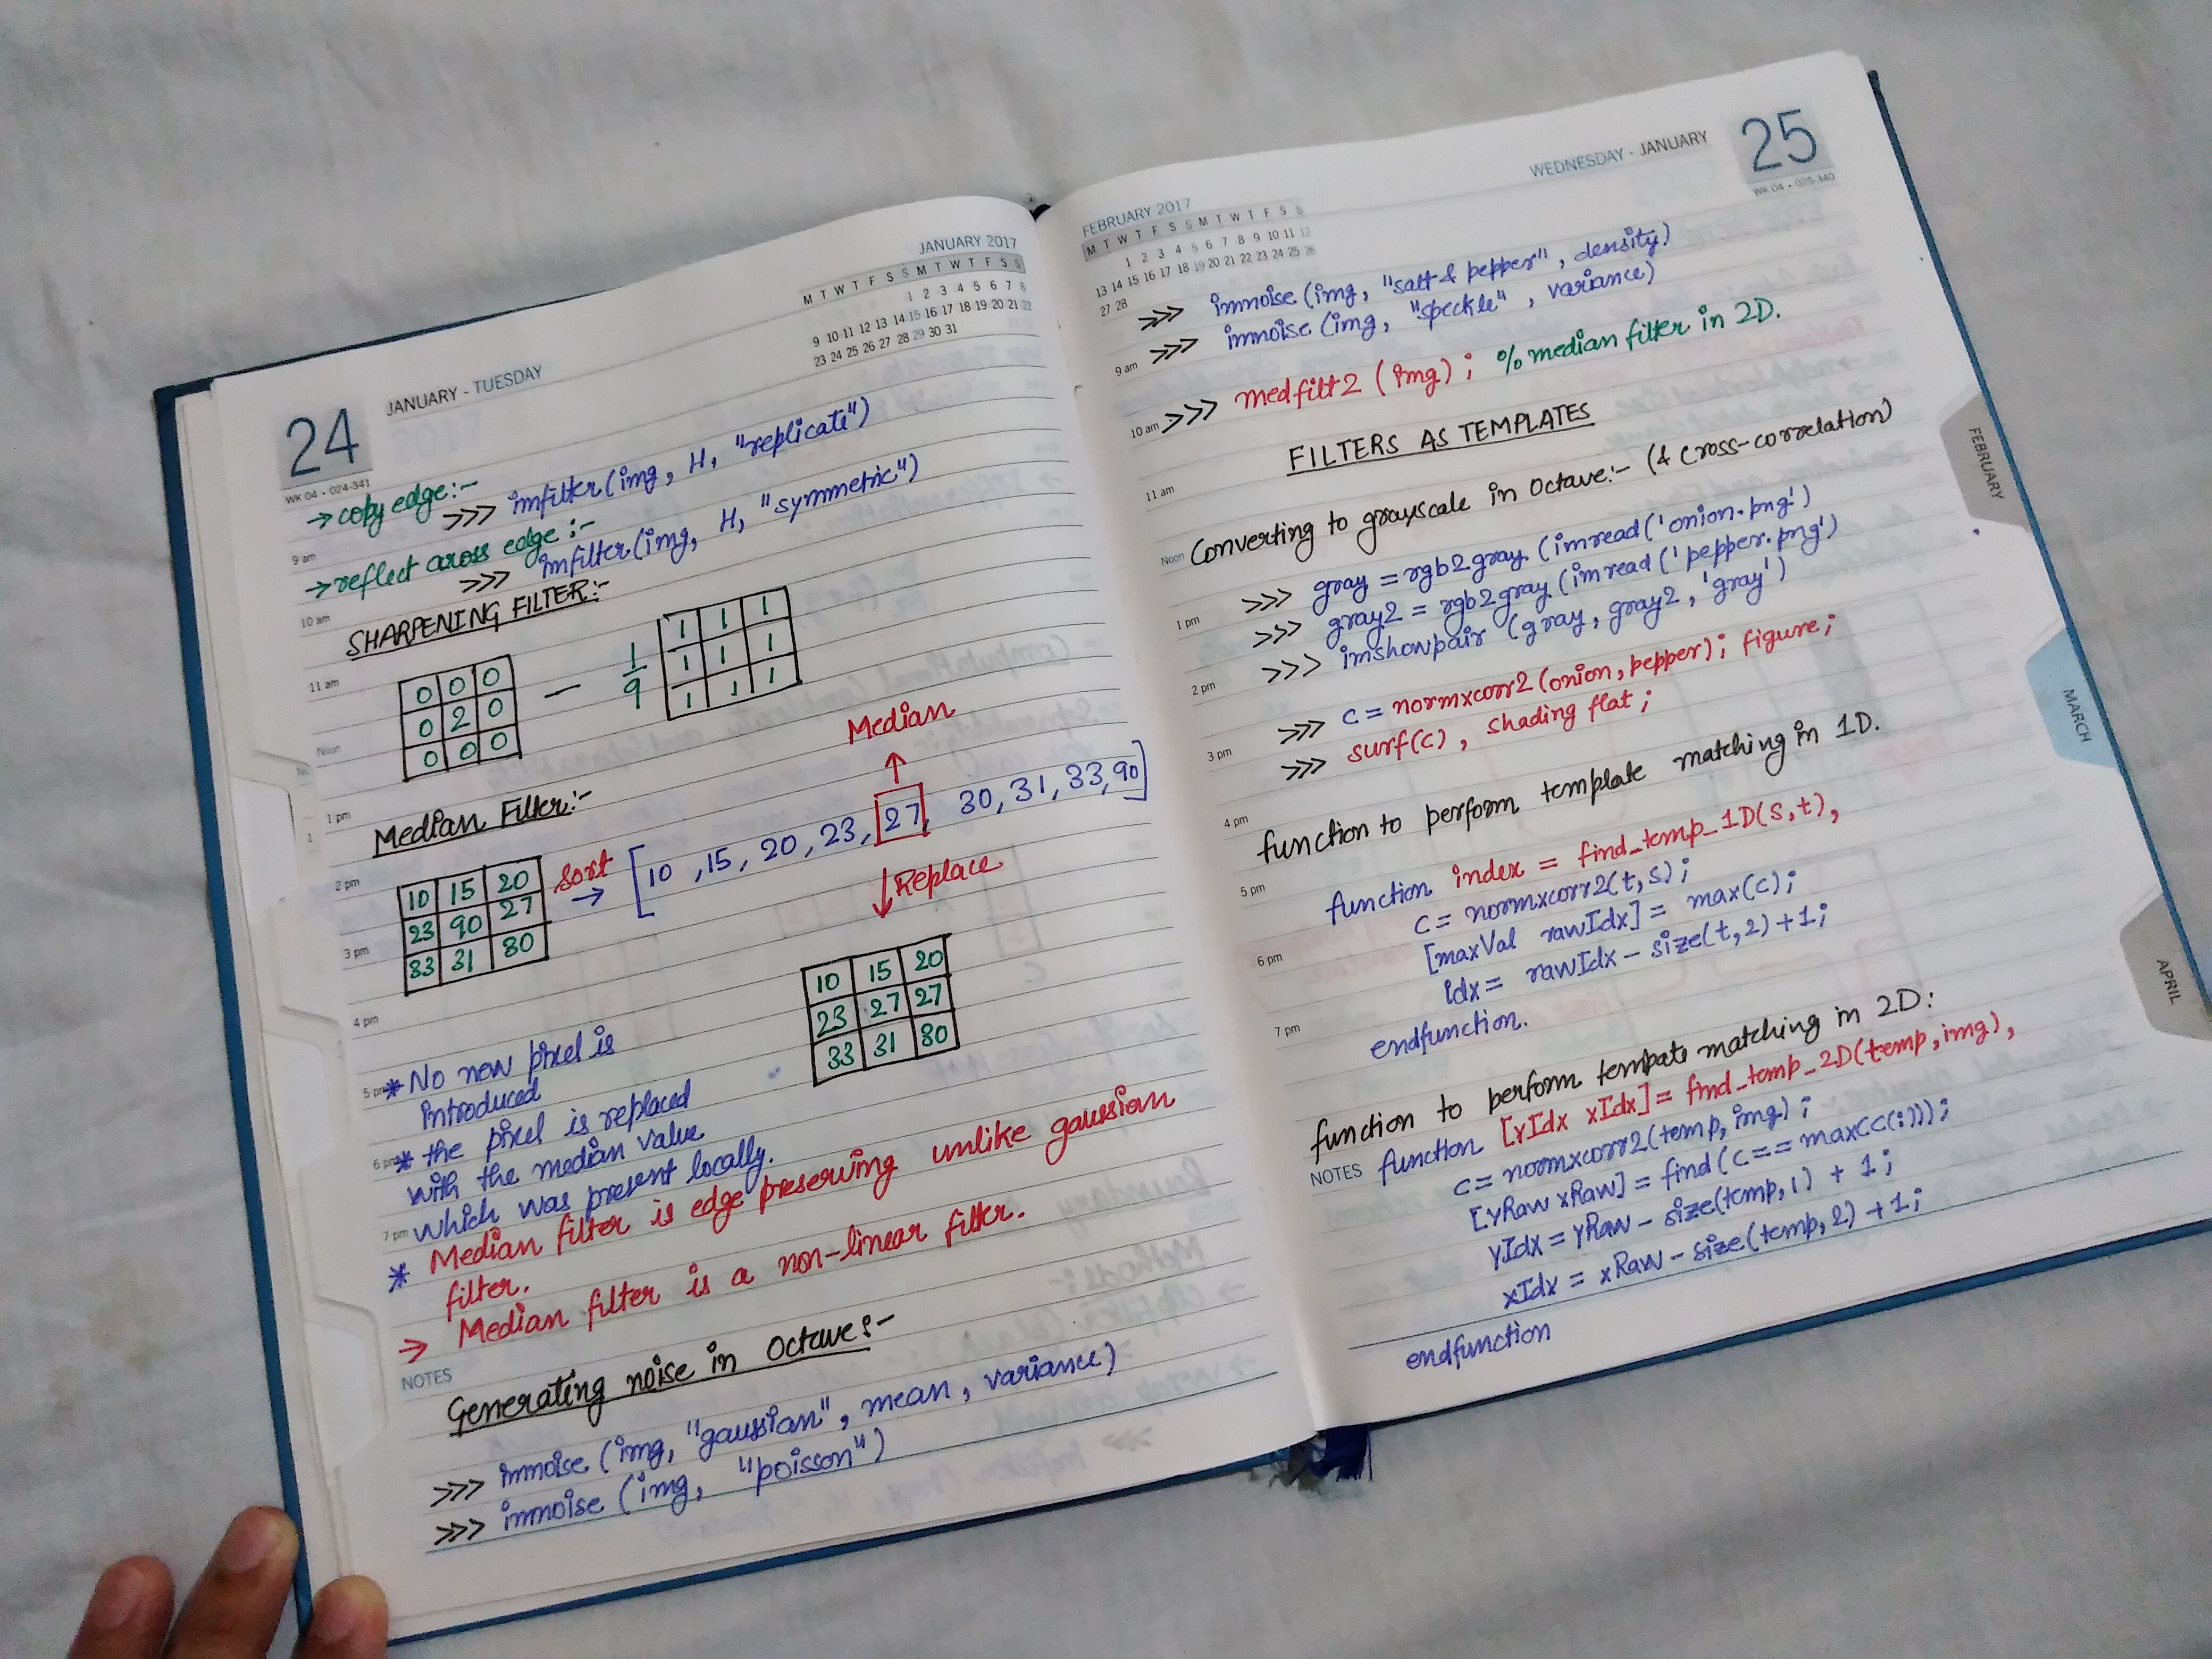 24
JANUARY - TUESDAY
WK 04 • 024-341
JANUARY 2017
M T W T F S S M T W T F S S
1 2 3 4 5 6 7 8
9 10 11 12 13 14 15 16 17 18 19 20 21 22
23 24 25 26 27 28 29 30 31
→ copy edge:-
>>> imfilter(img, H, "replicate")
→ reflect across edge:-
>>> imfilter(img, H, "symmetric")
SHARPENING FILTER:-
0 0 0
0 2 0
0 0 0
— 1/9
1 1 1
1 1 1
1 1 1
Median
Median Filter:-
10 15 20
23 90 27
33 31 30
Sort → [10, 15, 20, 23, 27, 30, 31, 33, 90]
↓ Replace
10 15 20
23 27 27
33 31 30
* No new pixel is
introduced
* the pixel is replaced
with the median value
which was present locally.
* Median filter is edge preserving unlike gaussian
filter.
→ Median filter is a non-linear filter.
Generating noise in Octave:-
>>> imnoise (img, "gaussian", mean, variance)
>>> imnoise (img, "poisson")
9 am
10 am
11 am
Noon
1 pm
2 pm
3 pm
4 pm
5 pm
6 pm
7 pm
NOTES
FEBRUARY 2017
M T W T F S S M T W T F S S
1 2 3 4 5 6 7 8 9 10 11 12
13 14 15 16 17 18 19 20 21 22 23 24 25 26
27 28
WEDNESDAY - JANUARY
25
WK 04 • 025-340
>>> imnoise (img, "salt & pepper", density)
>>> imnoise (img, "speckle", variance)
>>> medfilt2 (img); % median filter in 2D.
FILTERS AS TEMPLATES
Converting to grayscale in Octave:- (& cross-correlation)
>>> gray = rgb2gray (imread('onion.png')
>>> gray2 = rgb2gray (imread('pepper.png')
>>> imshowpair (gray, gray2, 'gray')
>>> c = normxcorr2 (onion, pepper); figure;
>>> surf(c), shading flat;
function to perform template matching in 1D.
function index = find_temp_1D(s,t),
c = normxcorr2(t,s);
[maxVal rawIdx] = max(c);
idx = rawIdx - size(t,2)+1;
endfunction.
function to perform tempate matching in 2D:
function [yIdx xIdx] = find_temp_2D(temp, img),
c = normxcorr2(temp, img);
[yRaw xRaw] = find(c == max(c(:)));
yIdx = yRaw - size(temp,1) + 1;
xIdx = xRaw - size(temp,2) +1;
endfunction
9 am
10 am
11 am
Noon
1 pm
2 pm
3 pm
4 pm
5 pm
6 pm
7 pm
NOTES
FEBRUARY
MARCH
APRIL